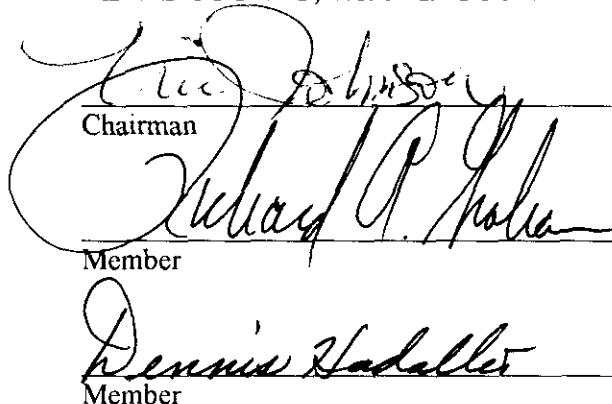 Johnson
Chairman
Richard P. Graham
Member
Dennis Hadaller
Member